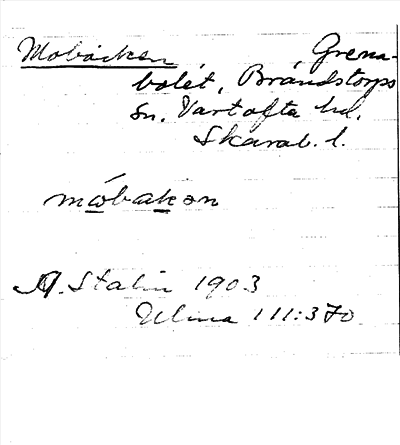 Mobacken Grena-
bolet, Brandstorps
Sn. Vartofta hd.
Skarab. l.
mɷ́bakən
A. Stalin 1903
Ulma 111:370